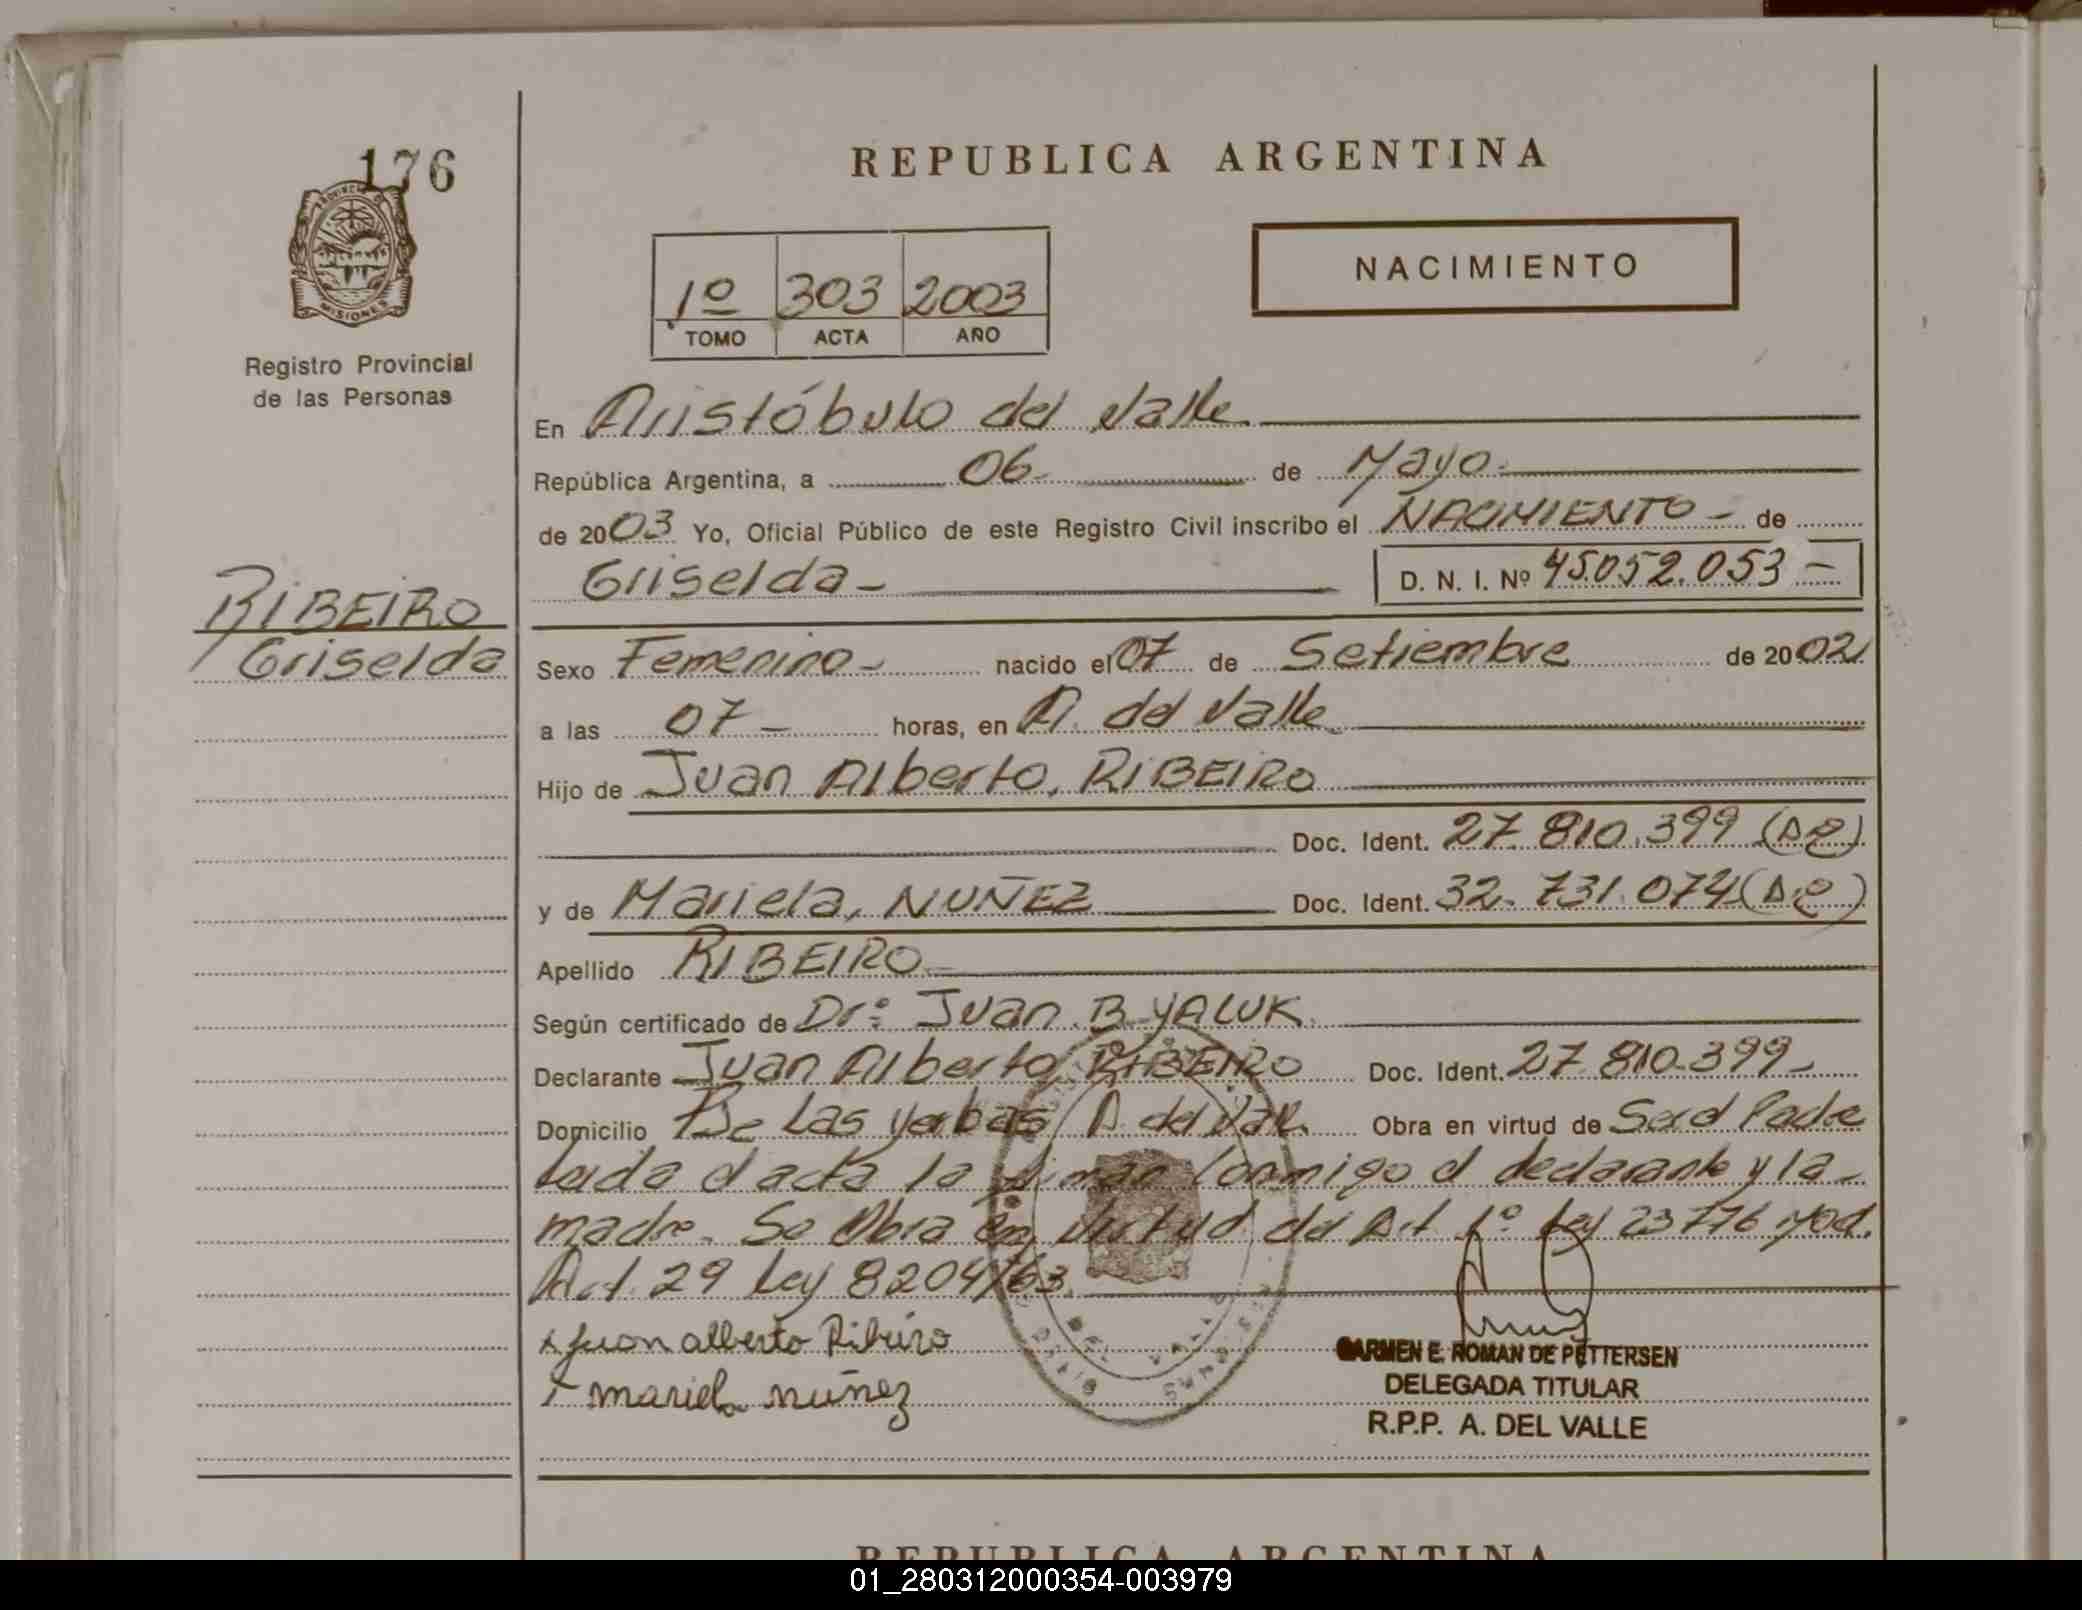 176
PROVINCIA DE
MISIONES
Registro Provincial
de las Personas
RIBEIRO
Griselda
REPUBLICA ARGENTINA
1º 303 2003
TOMO ACTA AÑO
NACIMIENTO
En Aristóbulo del Valle
República Argentina, a 06 de Mayo
de 2003 Yo, Oficial Público de este Registro Civil inscribo el NACIMIENTO - de
Griselda - D. N. I. Nº 45.052.053 -
Sexo Femenino - nacido el 07 de Setiembre de 2002
a las 07 - horas, en A. del Valle
Hijo de Juan Alberto, RIBEIRO
Doc. Ident. 27.810.399
y de Mariela, NUÑEZ Doc. Ident. 32.731.074
Apellido RIBEIRO
Según certificado de Dr: Juan B. YALUK
Declarante Juan Alberto RIBEIRO Doc. Ident. 27.810.399 -
Domicilio Be Las Yerbas A del Valle Obra en virtud de Ser el Padre
Leida el acta la firman conmigo el declarante y la
madre. Se Obra en virtud del Art 1º Ley 23776 Mod.
Art. 29 Ley 8204/63.
x Juan alberto Ribeiro
x mariela nuñez
CARMEN E. ROMAN DE PETTERSEN
DELEGADA TITULAR
R.P.P. A. DEL VALLE
DEL VALLE
REPUBLICA ARGENTINA
01_280312000354-003979